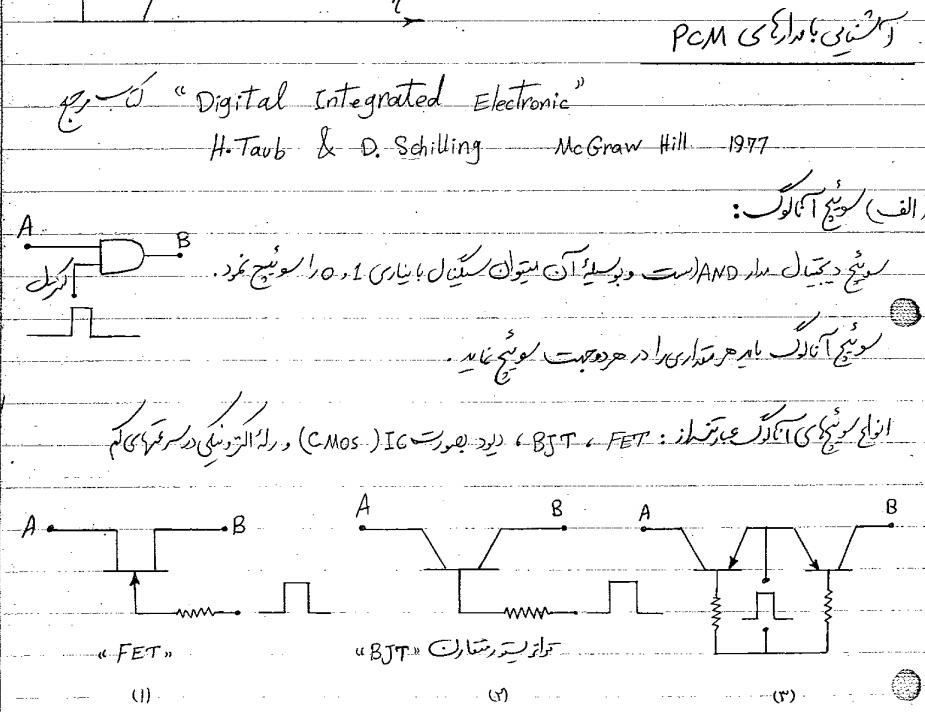 آشنایی با مدارهای PCM
کتاب مرجع "Digital Integrated Electronic"
H. Taub & D. Schilling McGraw Hill 1977
الف) سوئیچ آنالوگ:
A B
سوئیچ دیجیتال مدار AND است و بوسیله آن میتوان سیگنال باینری 0,1 را سوئیچ نمود.
کنترل
سوئیچ آنالوگ باید هر مقداری را در هر دو جهت سوئیچ نماید.
انواع سوئیچهای آنالوگ عبارتند از: FET ، BJT ، دیود بصورت IC (CMOS) و رله الکترونیکی در سرعتهای کم
A B A B A B
«FET» ترانزیستور متقارن «BJT»
(۱) (۲) (۳)